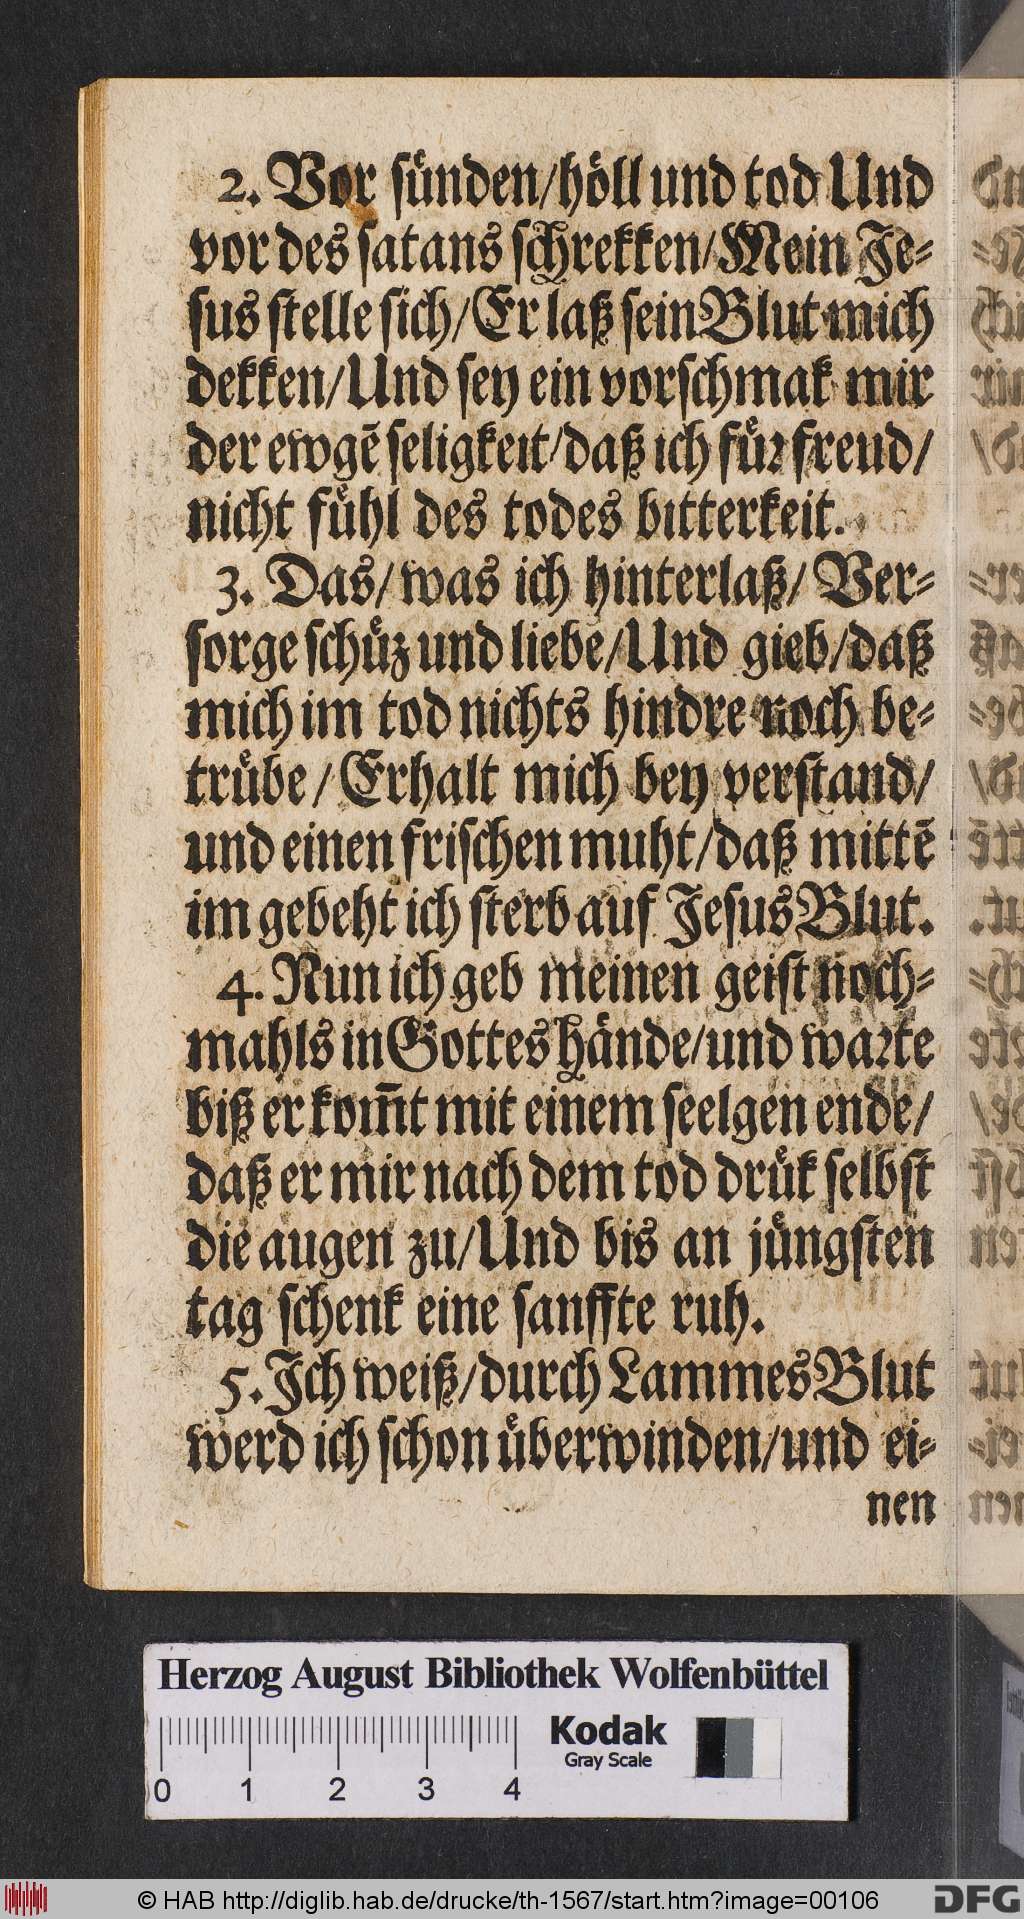 2. Vor sünden/höll und tod Und
vor des satans schrekken/Mein Je=
sus stelle sich/Er laß sein Blut mich
dekken/Und sey ein vorschmak mir
der ewgē seligkeit/daß ich für freud/
nicht fühl des todes bitterkeit.
3. Das/was ich hinterlaß/Ver=
sorge schüz und liebe/Und gieb/daß
mich im tod nichts hindre noch be=
trübe/Erhalt mich bey verstand/
und einen frischen muht/daß mittē
im gebeht ich sterb auf Jesus Blut.
4. Nun ich geb meinen geist noch=
mahls in Gottes hände/und warte
biß er kom̄t mit einem seelgen ende/
daß er mir nach dem tod drük selbst
die augen zu/Und bis an jüngsten
tag schenk eine sanffte ruh.
5. Ich weiß/durch Lammes Blut
werd ich schon überwinden/und ei=
nen
Herzog August Bibliothek Wolfenbüttel
Kodak
Gray Scale
0 1 2 3 4
© HAB http://diglib.hab.de/drucke/th-1567/start.htm?image=00106
DFG